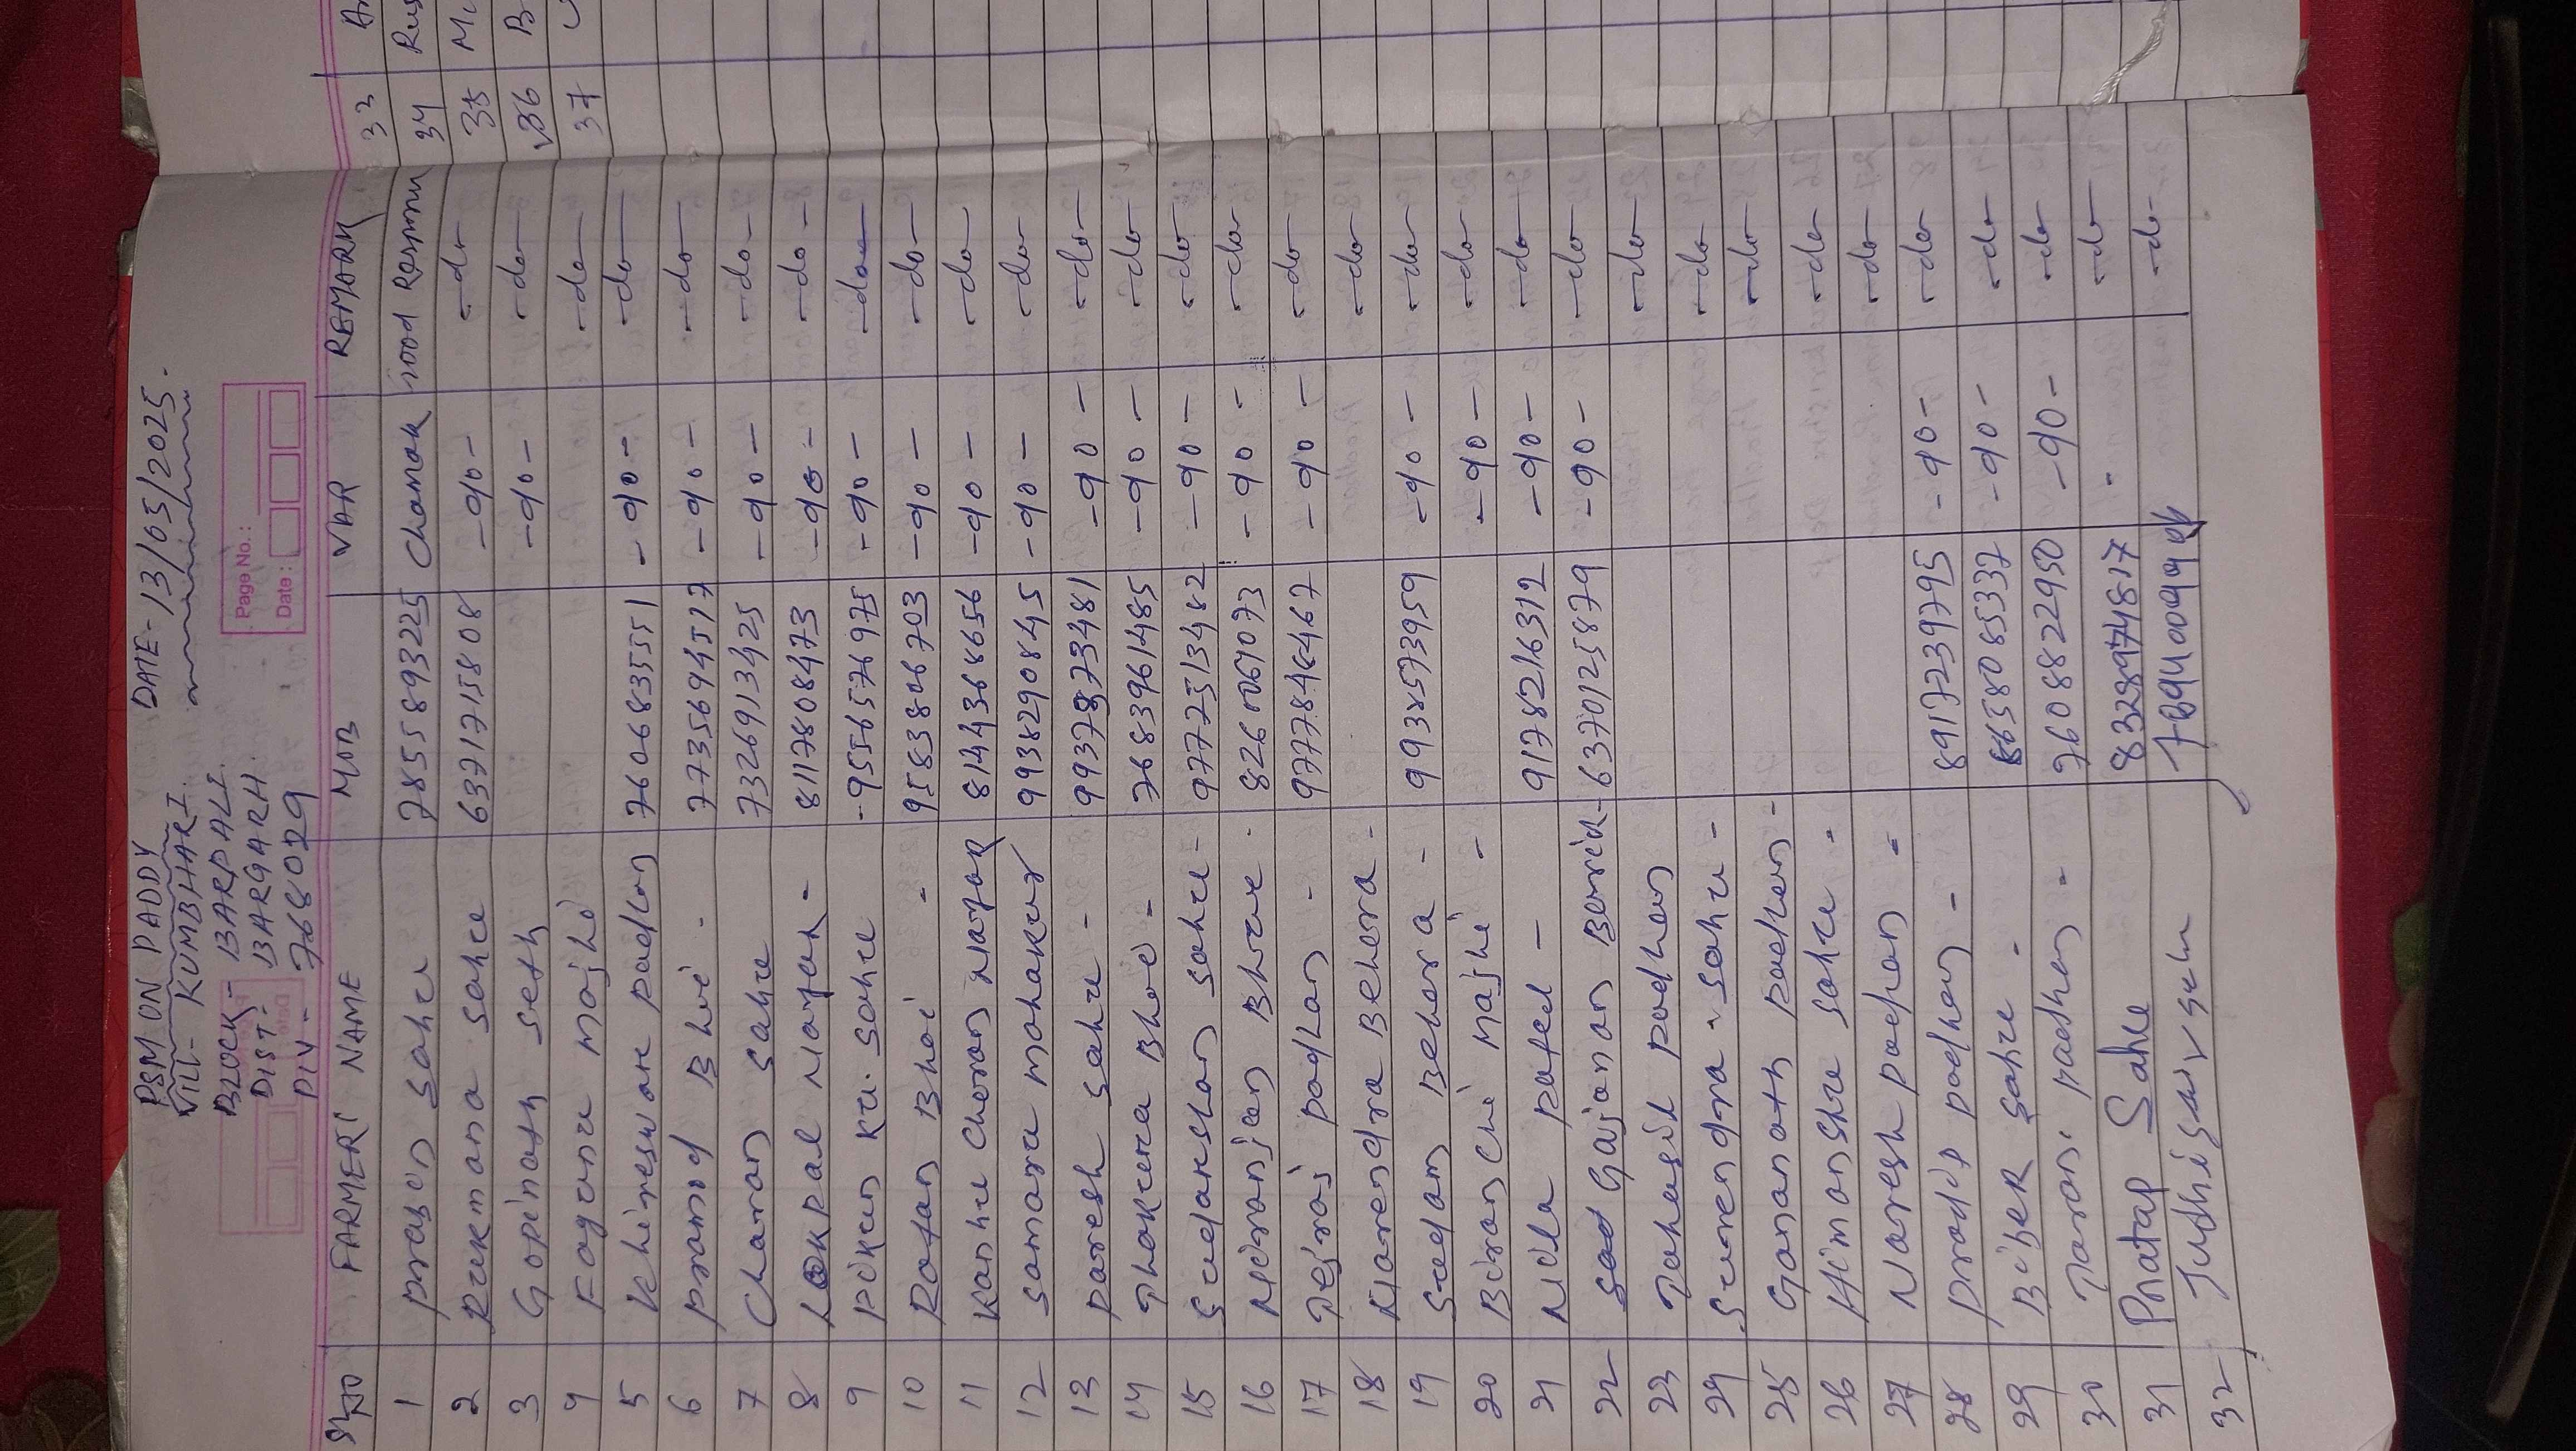 PSM ON PADDY DATE- 13/05/2025.
VILL- KUMBHARI.
BLOCK- BARPALI.
DIST- BARGARH.
PIN- 768029
Page No.:
Date:
SL NO FARMER'S NAME MOB VAR REMARK
1 Prasan Sahu 7855893225 Chamak Good Respon
2 Rukmana Sahu 6371715808 -do- -do-
3 Gopinath Seth -do- -do-
4 Fagunu Majhi -do-
5 Khireswar Padhan 7606835551 -do- -do-
6 Pramod Bhoi - 7735694517 -do- -do-
7 Charan Sahu 7326913425 -do- -do-
8 Lokpal Nayak - 8117808473 -do- -do-
9 Piku Ku. Sahu -9556576975 -do- -do-
10 Ratan Bhoi - 9583806703 -do- -do-
11 Kanhu Charan Nayak 8144368656 -do- -do-
12 Samaru Mahakur 9938290845 -do- -do-
13 Paresh Sahu - 9937873481 -do- -do-
14 Thakura Bhoi - 7683961485 -do- -do-
15 Sudarshan Sahu - 97772513482 -do- -do-
16 Niranjan Bhoi - -do- -do-
17 Tejraj Padhan - -do- -do-
18 Narendra Behera - -do-
19 Sudam Behera - 9938573959 -do- -do-
20 Biranchi Majhi - -do- -do-
21 Nila Patel - 9178216312 -do- -do-
22 Gajanan Barik - 6370125879 -do- -do-
23 Tahasil Padhan -do-
24 Surendra Sahu - -do-
25 Gananath Padhan - -do-
26 Himanshu Sahu - -do-
27 Naresh Padhan - -do-
28 Pradip Padhan - 8917239795 -do- -do-
29 Bibek Sahu - 8658085337 -do- -do-
30 Taran Padhan - 7608822950 -do- -do-
31 Pratap Sahu 8328974817 -do-
32 -do-
33
34
35
36
37